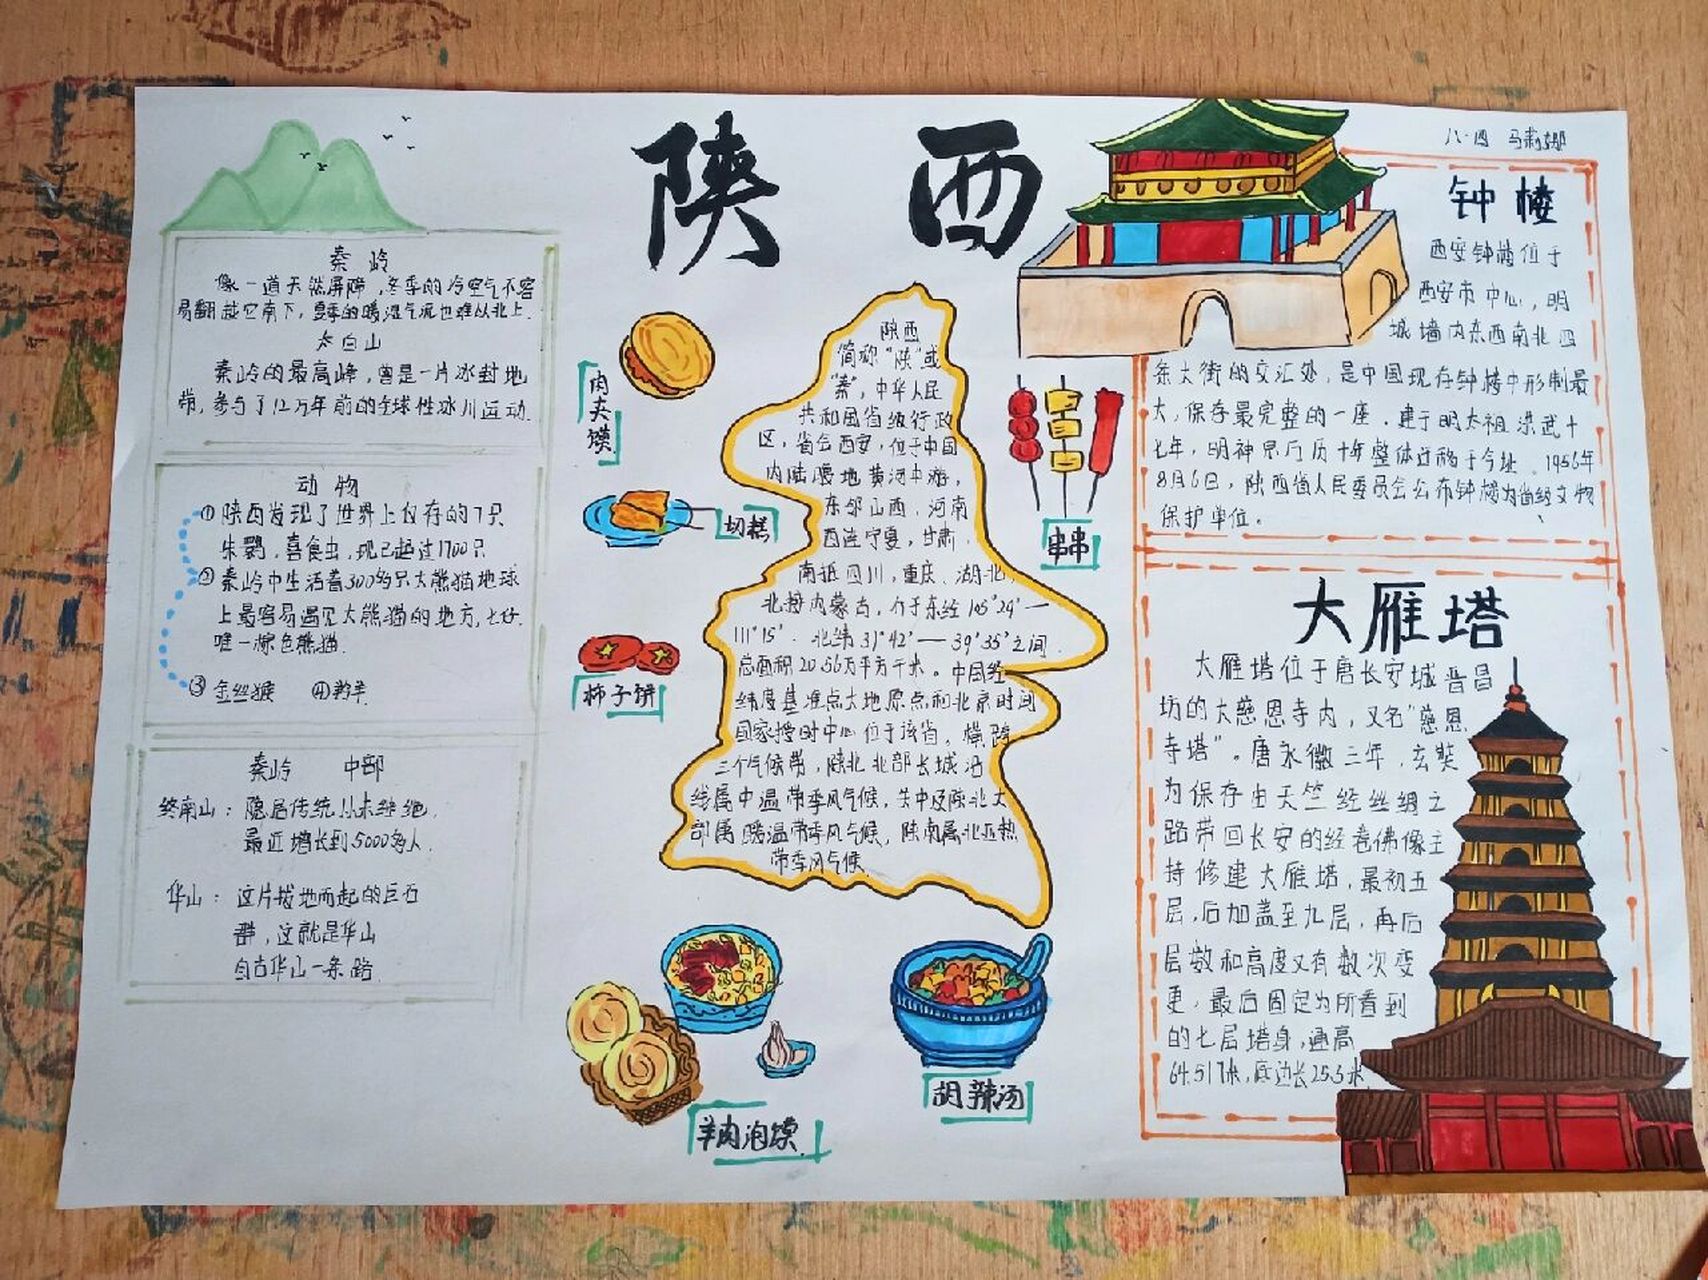 陕西
八·四 马莉娜
秦岭
像一道天然屏障,冬季的冷空气不容
易翻越它南下,夏季的暖湿气流也难以北上.
太白山
秦岭的最高峰,曾是一片冰封地
带,参与了12万年前的全球性冰川运动.
动物
① 陕西发现了世界上仅存的7只
朱鹮,喜食虫,现已超过1700只
② 秦岭中生活着300多只大熊猫地球
上最容易遇见大熊猫的地方,七仔.
唯一棕色熊猫.
③ 金丝猴 ④羚羊
秦岭 中部
终南山:隐居传统从未继绝.
最近增长到5000多人.
华山:这片拔地而起的巨石
群,这就是华山
自古华山一条路.
肉夹馍
切糕
柿子饼
串串
羊肉泡馍
胡辣汤
陕西
简称"陕"或
"秦",中华人民
共和国省级行政
区,省会西安,位于中国
内陆腹地黄河中游,
东邻山西,河南
西连宁夏,甘肃,
南抵四川,重庆、湖北,
北接内蒙古,介于东经105°29′—
111°15′.北纬31°42′—39°35′之间.
总面积20.56万平方千米。中国经
纬度基准点大地原点和北京时间
国家授时中心位于该省。横跨
三个气候带,陕北北部长城沿
线属中温带季风气候,关中及陕北大
部属暖温带季风气候,陕南属北亚热
带季风气候.
钟楼
西安钟楼位于
西安市中心,明
城墙内东西南北四
条大街的交汇处,是中国现存钟楼中形制最
大,保存最完整的一座.建于明太祖洪武十
七年,明神宗万历十年整体迁移于今址.1956年
8月6日,陕西省人民委员会公布钟楼为省级文物
保护单位。
大雁塔
大雁塔位于唐长安城晋昌
坊的大慈恩寺内,又名"慈恩
寺塔"。唐永徽三年,玄奘
为保存由天竺经丝绸之
路带回长安的经卷佛像主
持修建大雁塔,最初五
层,后加盖至九层,再后
层数和高度又有数次变
更,最后固定为所看到
的七层塔身,通高
64.517米,底边长25.5米